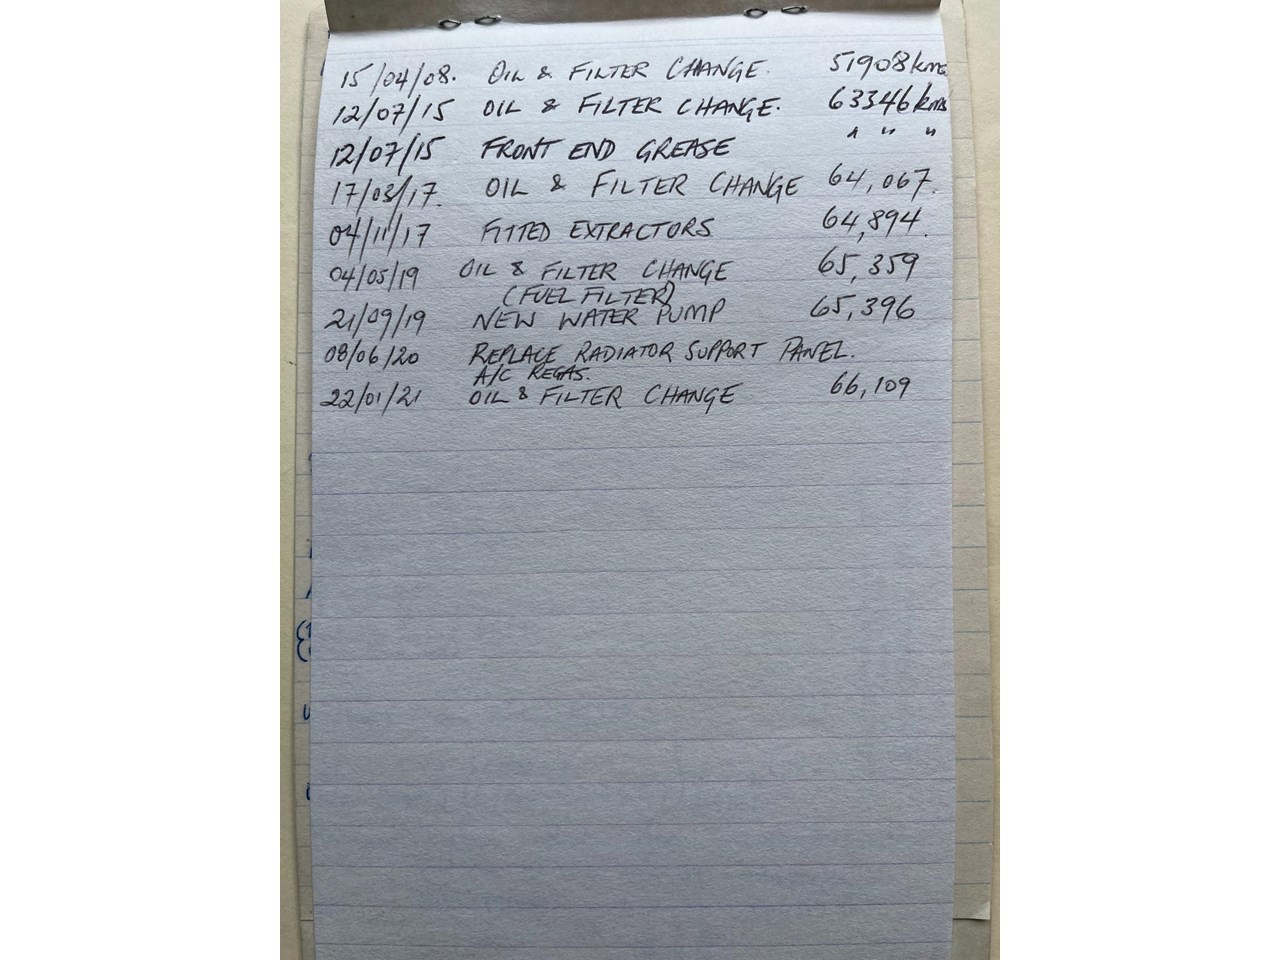 15/04/08. OIL & FILTER CHANGE. 51908 kms
12/07/15 OIL & FILTER CHANGE. 63346 kms
12/07/15 FRONT END GREASE " " "
17/03/17. OIL & FILTER CHANGE 64,067.
04/11/17 FITTED EXTRACTORS 64,894.
04/05/19 OIL & FILTER CHANGE 65,359
(FUEL FILTER)
21/09/19 NEW WATER PUMP 65,396
08/06/20 REPLACE RADIATOR SUPPORT PANEL.
A/C REGAS.
22/01/21 OIL & FILTER CHANGE 66,109